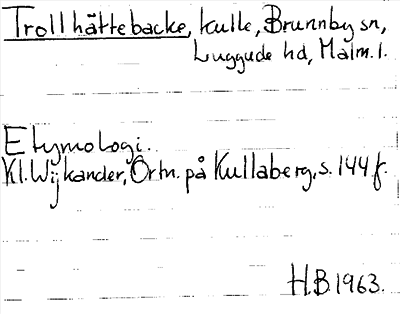 Trollhättebacke, kulle, Brunnby sn,
Luggude hd, Malm. l.
Etymologi.
Kl. Wijkander, Ortn. på Kullaberg, s. 144 f.
H.B 1963.